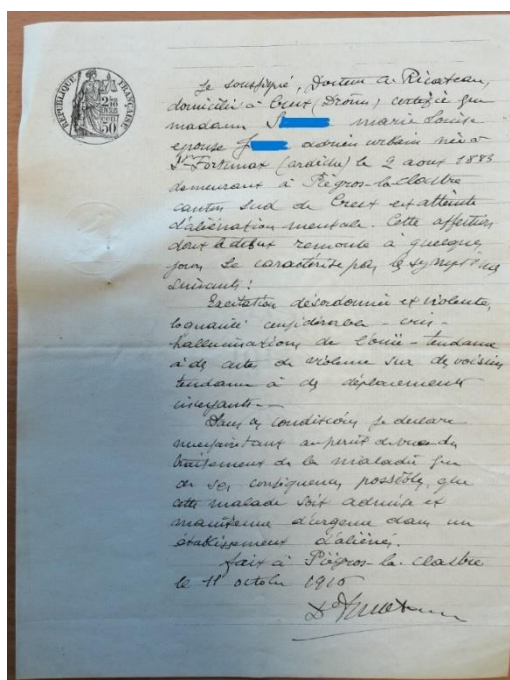 RÉPUBLIQUE FRANÇAISE
Je soussigné, Docteur A. Ricateau,
domicilié à Crest (Drôme) certifie que
madame S marie Louise
épouse J adrien urbain née à
St Fortunat (ardèche) le 2 aout 1883
demeurant à Piégros-la-Clastre
canton sud de Crest est atteinte
d'aliénation mentale. Cette affection
dont le début remonte à quelques
jours se caractérise par les symptômes
suivants :
Excitation désordonnée et violente,
loquacité considérable - cris -
hallucinations de l'ouïe - tendance
à des actes de violence sur des voisins
tendance à des déplacements
incessants -
Dans ces conditions je déclare
nécessaire tant au point de vue du
traitement de la maladie que
de ses conséquences possibles, que
cette malade soit admise et
maintenue d'urgence dans un
établissement d'aliénés.
fait à Piégros-la-Clastre
le 11 octobre 1916